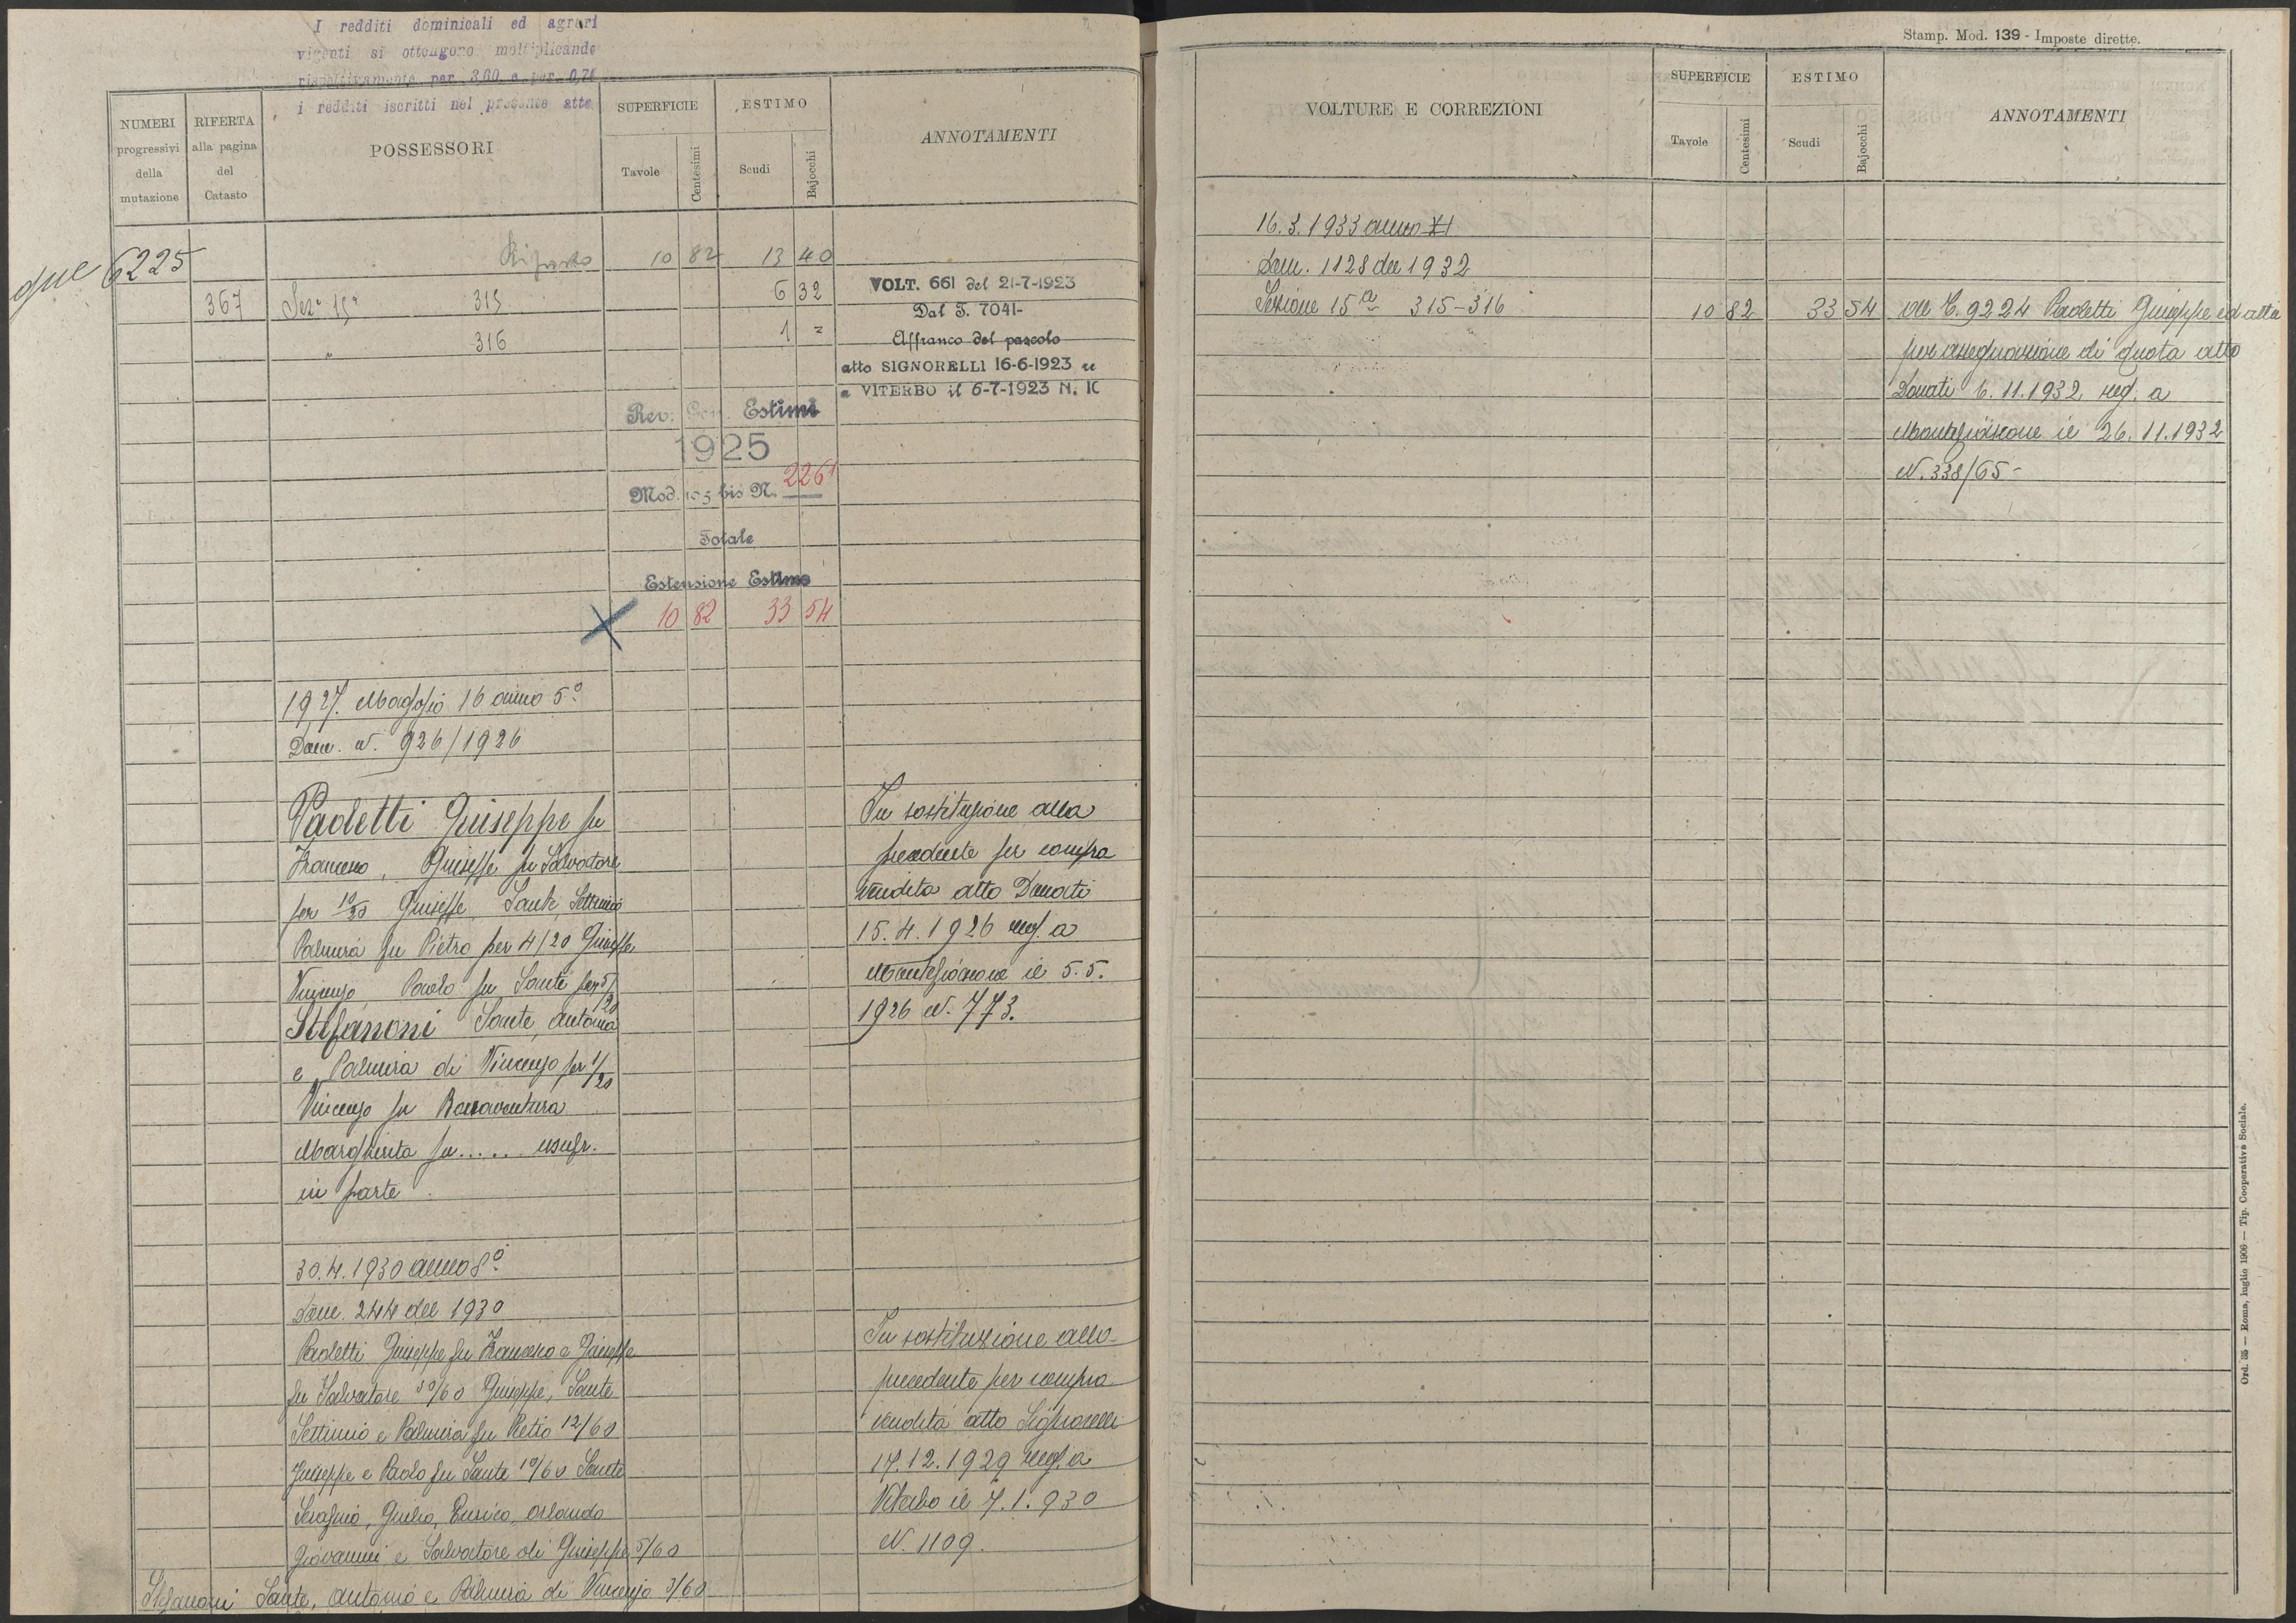 I redditi dominicali ed agrari
vigenti si ottengono moltiplicando
rispettivamente per 3,60 e per 0,76
i redditi iscritti nel presente atto
NUMERI
progressivi
della
mutazione
RIFERTA
alla pagina
del
Catasto
POSSESSORI
SUPERFICIE
Tavole
Centesimi
ESTIMO
Scudi
Bajocchi
ANNOTAMENTI
que 6225
Riporto 10 82 13 40
367 Sez.e 15a 315 6 32
" 316 1 =
VOLT. 661 del 21-7-1923
Dal T. 7041-
Affranco del pascolo
atto SIGNORELLI 16-6-1923 re
a VITERBO il 6-7-1923 N. 10
Rev. Gen. Estimi
1925
Mod. 105 bis N. 2261
Totale
Estensione Estimo
10 82 33 54
1927. Maggio 16 anno 5°
Dom. N. 926/1926
Paoletti Giuseppe fu
Francesco, Giuseppe fu Salvatore
per 10/20 Giuseppe, Sante, Settimio
Palmira fu Pietro per 4/20 Giuseppe
Vincenzo, Paolo fu Sante per 5/20
Stefanoni Sante, Antonio
e Palmira di Vincenzo per 1/20
Vincenzo fu Bonaventura
Margherita fu ..... usufr.
in parte
In sostituzione alla
precedente per compra
vendita atto Donati
15.4.1926 reg. a
Montefiascone il 5.5.
1926 N. 773.
30.4.1930 anno 8°
Dom. 244 del 1930
Paoletti Giuseppe fu Francesco e Giuseppe
fu Salvatore 30/60 Giuseppe, Sante
Settimio e Palmira fu Pietro 12/60
Giuseppe e Paolo fu Sante 10/60 Sante
Serafino, Giulio, Enrico, Orlando
Giovanni e Salvatore di Giuseppe 5/60
Stefanoni Sante, Antonio e Palmira di Vincenzo 3/60
In sostituzione alla
precedente per compra
vendita atto Signorelli
17.12.1929 reg. a
Viterbo il 7.1.930
N. 1109.
Stamp. Mod. 139 - Imposte dirette.
VOLTURE E CORREZIONI
SUPERFICIE
Tavole
Centesimi
ESTIMO
Scudi
Bajocchi
ANNOTAMENTI
16.3.1933 anno XI
Dom. 1128 del 1932
Sezione 15a 315-316 10 82 33 54 Al T. 9224 Paoletti Giuseppe ed altri
per assegnazione di quota atto
Donati 6.11.1932 reg. a
Montefiascone il 26.11.1932
N. 338/65-
Ord. 35 — Roma, luglio 1906 — Tip. Cooperativa Sociale.